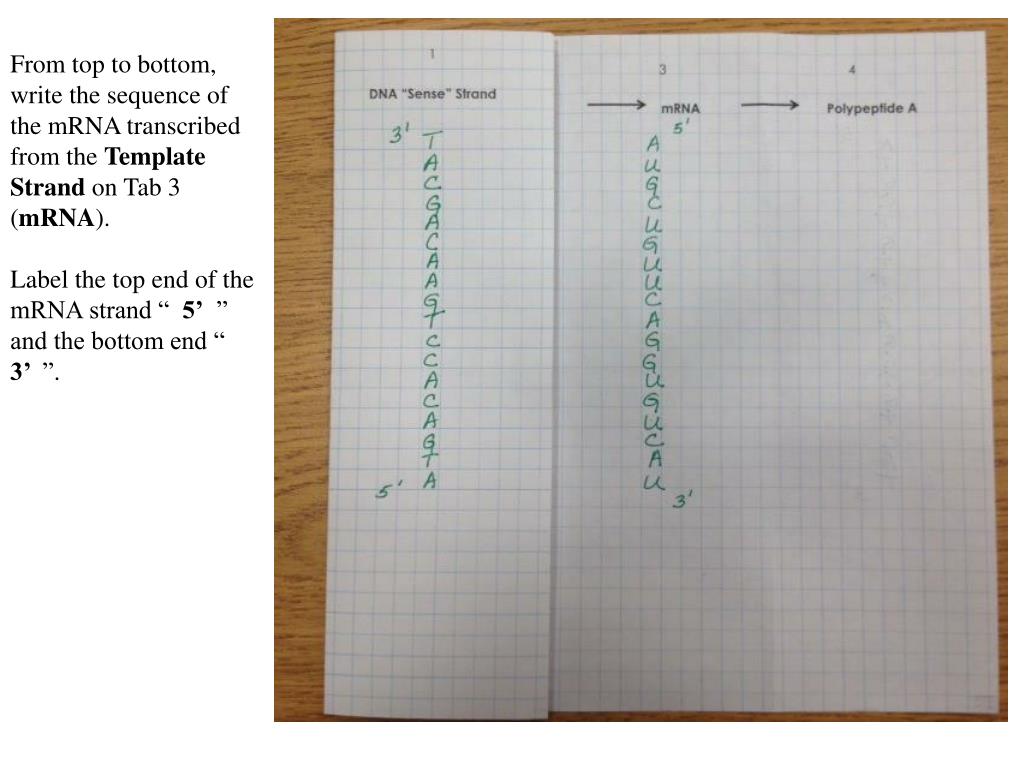 From top to bottom,
write the sequence of
the mRNA transcribed
from the Template
Strand on Tab 3
(mRNA).
Label the top end of the
mRNA strand “ 5’ ”
and the bottom end “
3’ ”.
1
DNA “Sense” Strand
3'
T
A
C
G
A
C
A
A
G
T
C
C
A
C
A
G
T
A
5'
3
mRNA
5'
A
U
G
C
U
G
U
U
C
A
G
G
U
G
U
C
A
U
3'
4
Polypeptide A